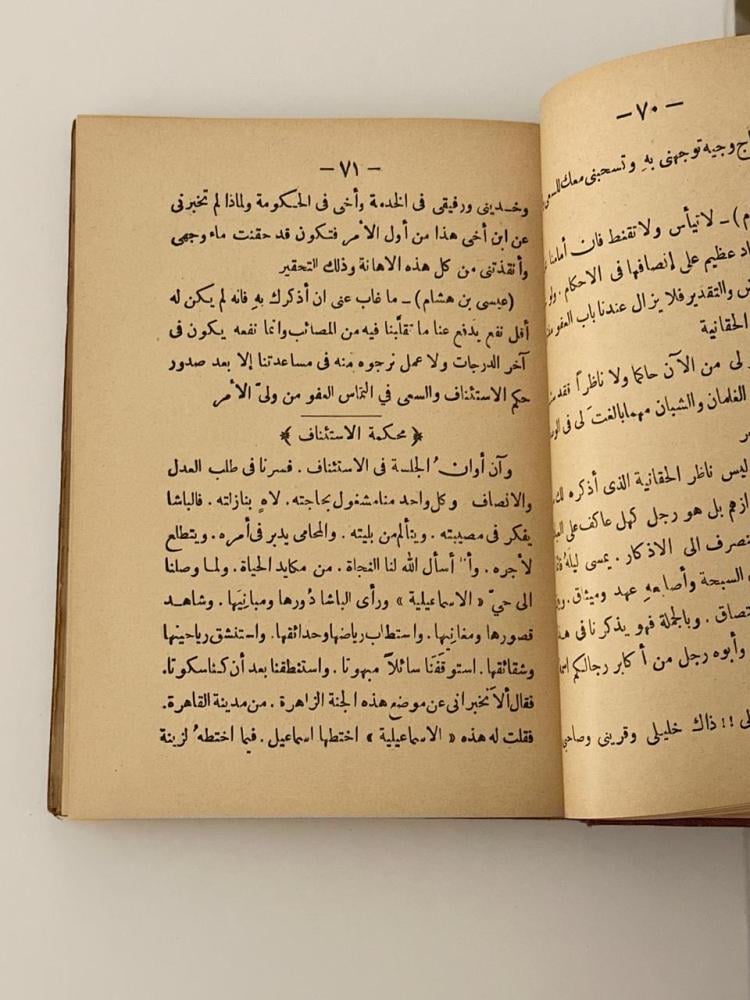 — ٧٠ —
اج وجيه توجهنى بهِ وتسحبنى معك للسعى
م) – لا تيأس ولا تقنط فان أمامنا
اد عظيم على إنصافها فى الاحكام . ولو
والتقدير فلا يزال عندنا باب العفو
الحقانية
لى من الآن حاكما ولا ناظراً فقد
الغلمان والشبان مهما بالغت لى فى
ليس ناظر الحقانية الذى أذكره لك
ازهم بل هو رجل كهل عاكف على
نصرف الى الاذكار . يمسى ليله
السبحة وأصابعهِ عهد وميثاق .
تصاق . وبالجملة فهو يذكرنا فى
وأبوه رجل من أكابر رجالكم
لى !! ذاك خليلى وقرينى وصاحبى
— ٧١ —
وخدينى ورفيقى فى الخدمة وأخى فى الحكومة ولماذا لم تخبرنى
عن ابن أخى هذا من أول الأمر فتكون قد حقنت ماء وجهى
وأنقذتنى من كل هذه الاهانة وذلك التحقير
(عيسى بن هشام) – ما غاب عنى ان أذكرك بهِ فانه لم يكن له
أقل نفع يدفع عنا ما تقلّبنا فيه من المصائب وانما نفعه يكون فى
آخر الدرجات ولا عمل نرجوه منه فى مساعدتنا إلا بعد صدور
حكم الاستئناف والسعى في التماس العفو من ولىّ الأمر
﴿ محكمة الاستئناف ﴾
وآن أوانُ الجلسة فى الاستئناف . فسرنا فى طلب العدل
والانصاف وكل واحد منا مشغول بحاجته . لاهٍ بنازلته . فالباشا
يفكر فى مصيبته . ويتألم من بليته . والمحامى يدبر فى أمره . ويتطلع
لأجره . وأنا أسأل الله لنا النجاة . من مكايد الحياة . ولما وصلنا
الى حىّ « الاسماعيلية » ورأى الباشا دُورها ومبانيَها . وشاهد
قصورها ومغانيها . واستطاب رياضها وحدائقها . واستنشق رياحينها
وشقائقها . استوقفَنا سائلاً مبهوتا . واستنطقنا بعد أن كنا سكوتا .
فقال ألا تخبرانى عن موضع هذه الجنة الزاهرة . من مدينة القاهرة .
فقلت له هذه « الاسماعيلية » اختطها اسماعيل . فيما اختطهُ لزينة